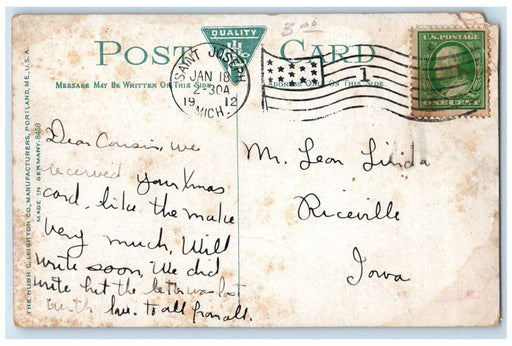 3 00
QUALITY
POST CARD
MESSAGE MAY BE WRITTEN ON THIS SIDE
ADDRESS ONLY ON THIS SIDE
SAINT JOSEPH
JAN 18
2-30A
1912
MICH.
1
U.S. POSTAGE
ONE CENT
THE HUGH C. LEIGHTON CO., MANUFACTURERS, PORTLAND, ME., U.S.A.
MADE IN GERMANY. 8459
Dear Cousin, we
received your Xmas
card, like the make
very much, Will
write soon, We did
write but the letter was lost
with love to all from all.
Mr. Leon
Riceville
Iowa